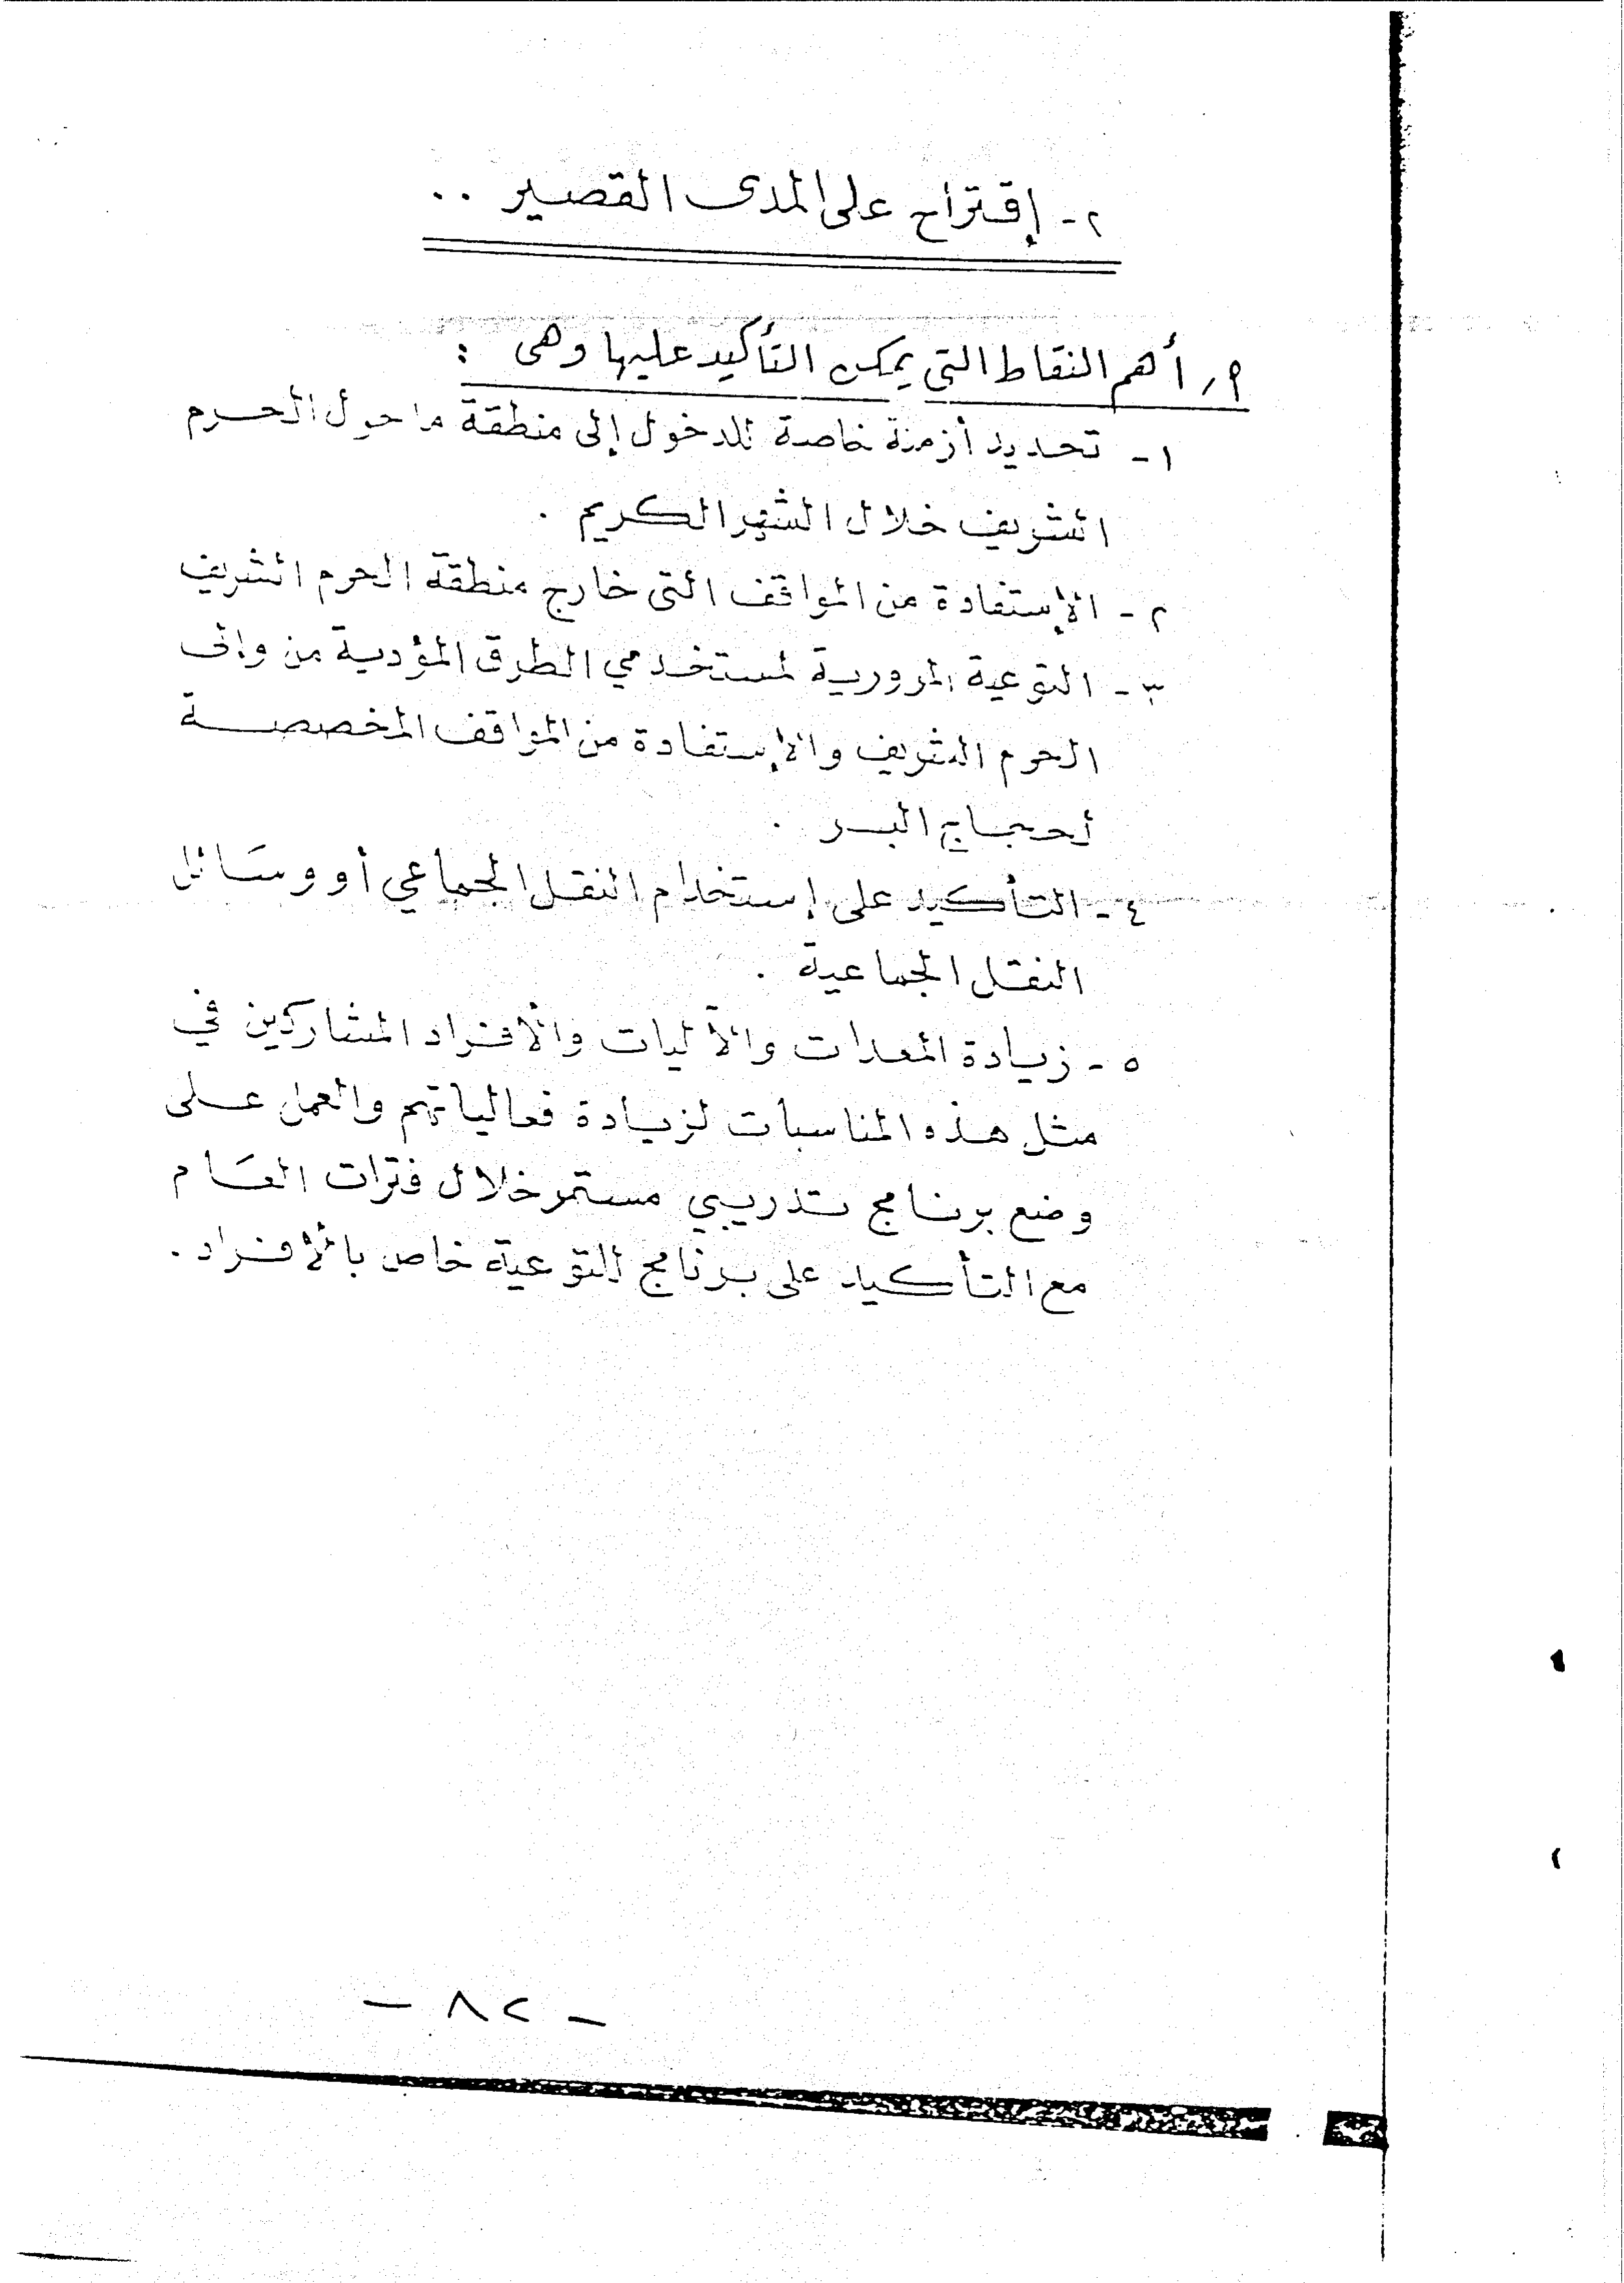 ٢- إقتراح على المدى القصير ..
٩, أهم النقاط التي يمكن التأكيد عليها وهى :
١- تحديد أزمنة خاصة للدخول إلى منطقة ما حول الحرم
الشريف خلال الشهر الكريم .
٢- الإستفادة من المواقف التى خارج منطقة الحرم الشريف
٣- التوعية المرورية لمستخدمي الطرق المؤدية من وإلى
الحرم الشريف والإستفادة من المواقف المخصصة
لحجاج البر .
٤- التأكيد على إستخدام النقل الجماعي أو وسائل
النقل الجماعية .
٥- زيادة المعدات والآليات والأفراد المشاركين في
مثل هذه المناسبات لزيادة فعالياتهم والعمل على
وضع برنامج تدريبي مستمر خلال فترات العام
مع التأكيد على برنامج للتوعية خاص بالأفراد .
- ٨٢ -